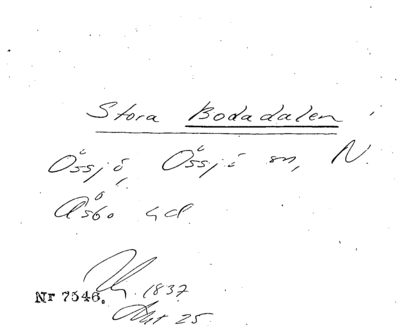 Stora Bodadalen
Össjö, Össjö sn, N.
Åsbo hd.
Nr 7546. 1837
Akt 25